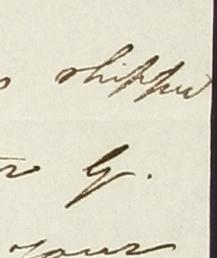 shipped
G.
your